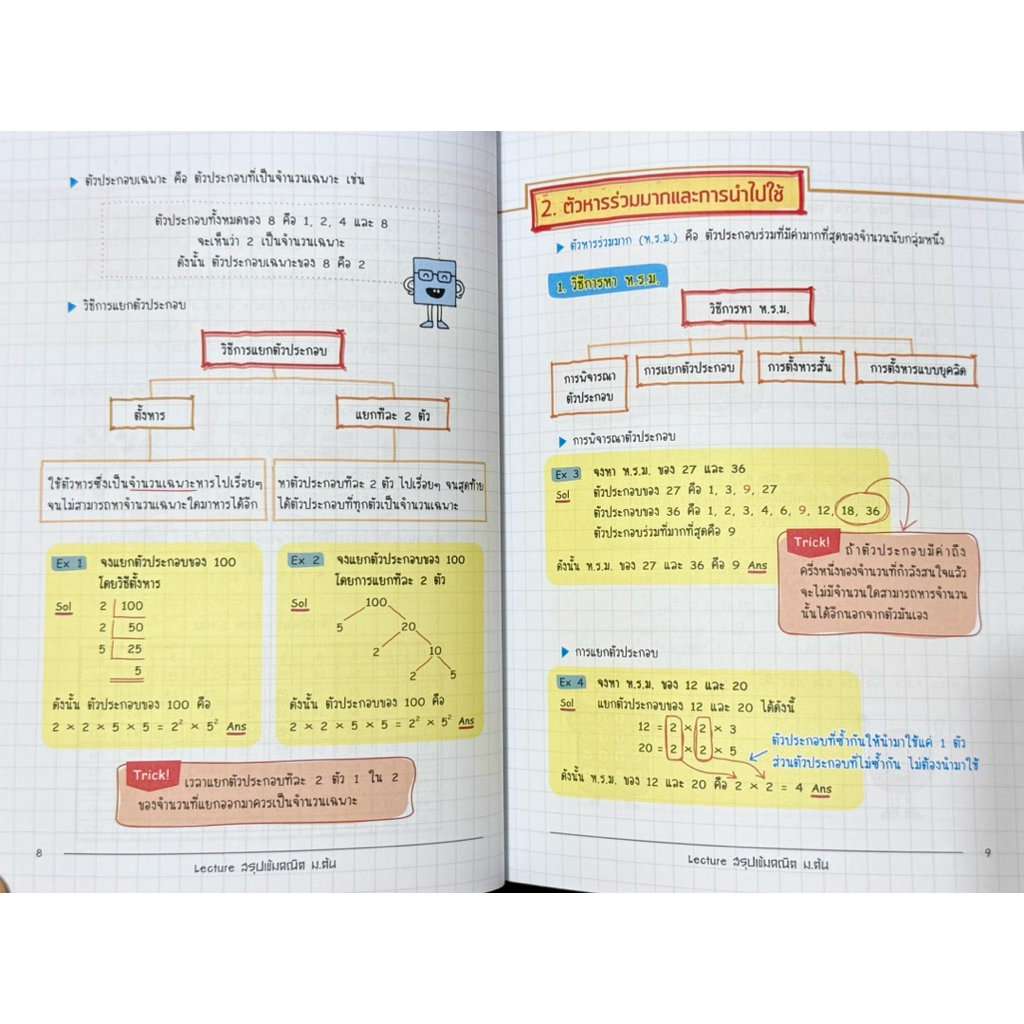 ตัวประกอบเฉพาะ คือ ตัวประกอบที่เป็นจำนวนเฉพาะ เช่น
ตัวประกอบทั้งหมดของ 8 คือ 1, 2, 4 และ 8
จะเห็นว่า 2 เป็นจำนวนเฉพาะ
ดังนั้น ตัวประกอบเฉพาะของ 8 คือ 2
วิธีการแยกตัวประกอบ
วิธีการแยกตัวประกอบ
ตั้งหาร
แยกทีละ 2 ตัว
ใช้ตัวหารซึ่งเป็นจำนวนเฉพาะหารไปเรื่อยๆ
จนไม่สามารถหาจำนวนเฉพาะใดมาหารได้อีก
หาตัวประกอบทีละ 2 ตัว ไปเรื่อยๆ จนสุดท้าย
ได้ตัวประกอบที่ทุกตัวเป็นจำนวนเฉพาะ
Ex 1 จงแยกตัวประกอบของ 100
โดยวิธีตั้งหาร
Sol 2 100
2 50
5 25
5
ดังนั้น ตัวประกอบของ 100 คือ
2 × 2 × 5 × 5 = 2² × 5² Ans
Ex 2 จงแยกตัวประกอบของ 100
โดยการแยกทีละ 2 ตัว
Sol 100
5 20
2 10
2 5
ดังนั้น ตัวประกอบของ 100 คือ
2 × 2 × 5 × 5 = 2² × 5² Ans
Trick!
เวลาแยกตัวประกอบทีละ 2 ตัว 1 ใน 2
ของจำนวนที่แยกออกมาควรเป็นจำนวนเฉพาะ
8
Lecture สรุปเข้มคณิต ม.ต้น
2. ตัวหารร่วมมากและการนำไปใช้
ตัวหารร่วมมาก (ห.ร.ม.) คือ ตัวประกอบร่วมที่มีค่ามากที่สุดของจำนวนนับกลุ่มหนึ่ง
1. วิธีการหา ห.ร.ม.
วิธีการหา ห.ร.ม.
การพิจารณา
ตัวประกอบ
การแยกตัวประกอบ
การตั้งหารสั้น
การตั้งหารแบบยุคลิด
การพิจารณาตัวประกอบ
Ex 3 จงหา ห.ร.ม. ของ 27 และ 36
Sol ตัวประกอบของ 27 คือ 1, 3, 9, 27
ตัวประกอบของ 36 คือ 1, 2, 3, 4, 6, 9, 12, 18, 36
ตัวประกอบร่วมที่มากที่สุดคือ 9
ดังนั้น ห.ร.ม. ของ 27 และ 36 คือ 9 Ans
Trick!
ถ้าตัวประกอบมีค่าถึง
ครึ่งหนึ่งของจำนวนที่กำลังสนใจแล้ว
จะไม่มีจำนวนใดสามารถหารจำนวน
นั้นได้อีกนอกจากตัวมันเอง
การแยกตัวประกอบ
Ex 4 จงหา ห.ร.ม. ของ 12 และ 20
Sol แยกตัวประกอบของ 12 และ 20 ได้ดังนี้
12 = 2 × 2 × 3
20 = 2 × 2 × 5
ตัวประกอบที่ซ้ำกันให้นำมาใช้แค่ 1 ตัว
ส่วนตัวประกอบที่ไม่ซ้ำกัน ไม่ต้องนำมาใช้
ดังนั้น ห.ร.ม. ของ 12 และ 20 คือ 2 × 2 = 4 Ans
Lecture สรุปเข้มคณิต ม.ต้น
9